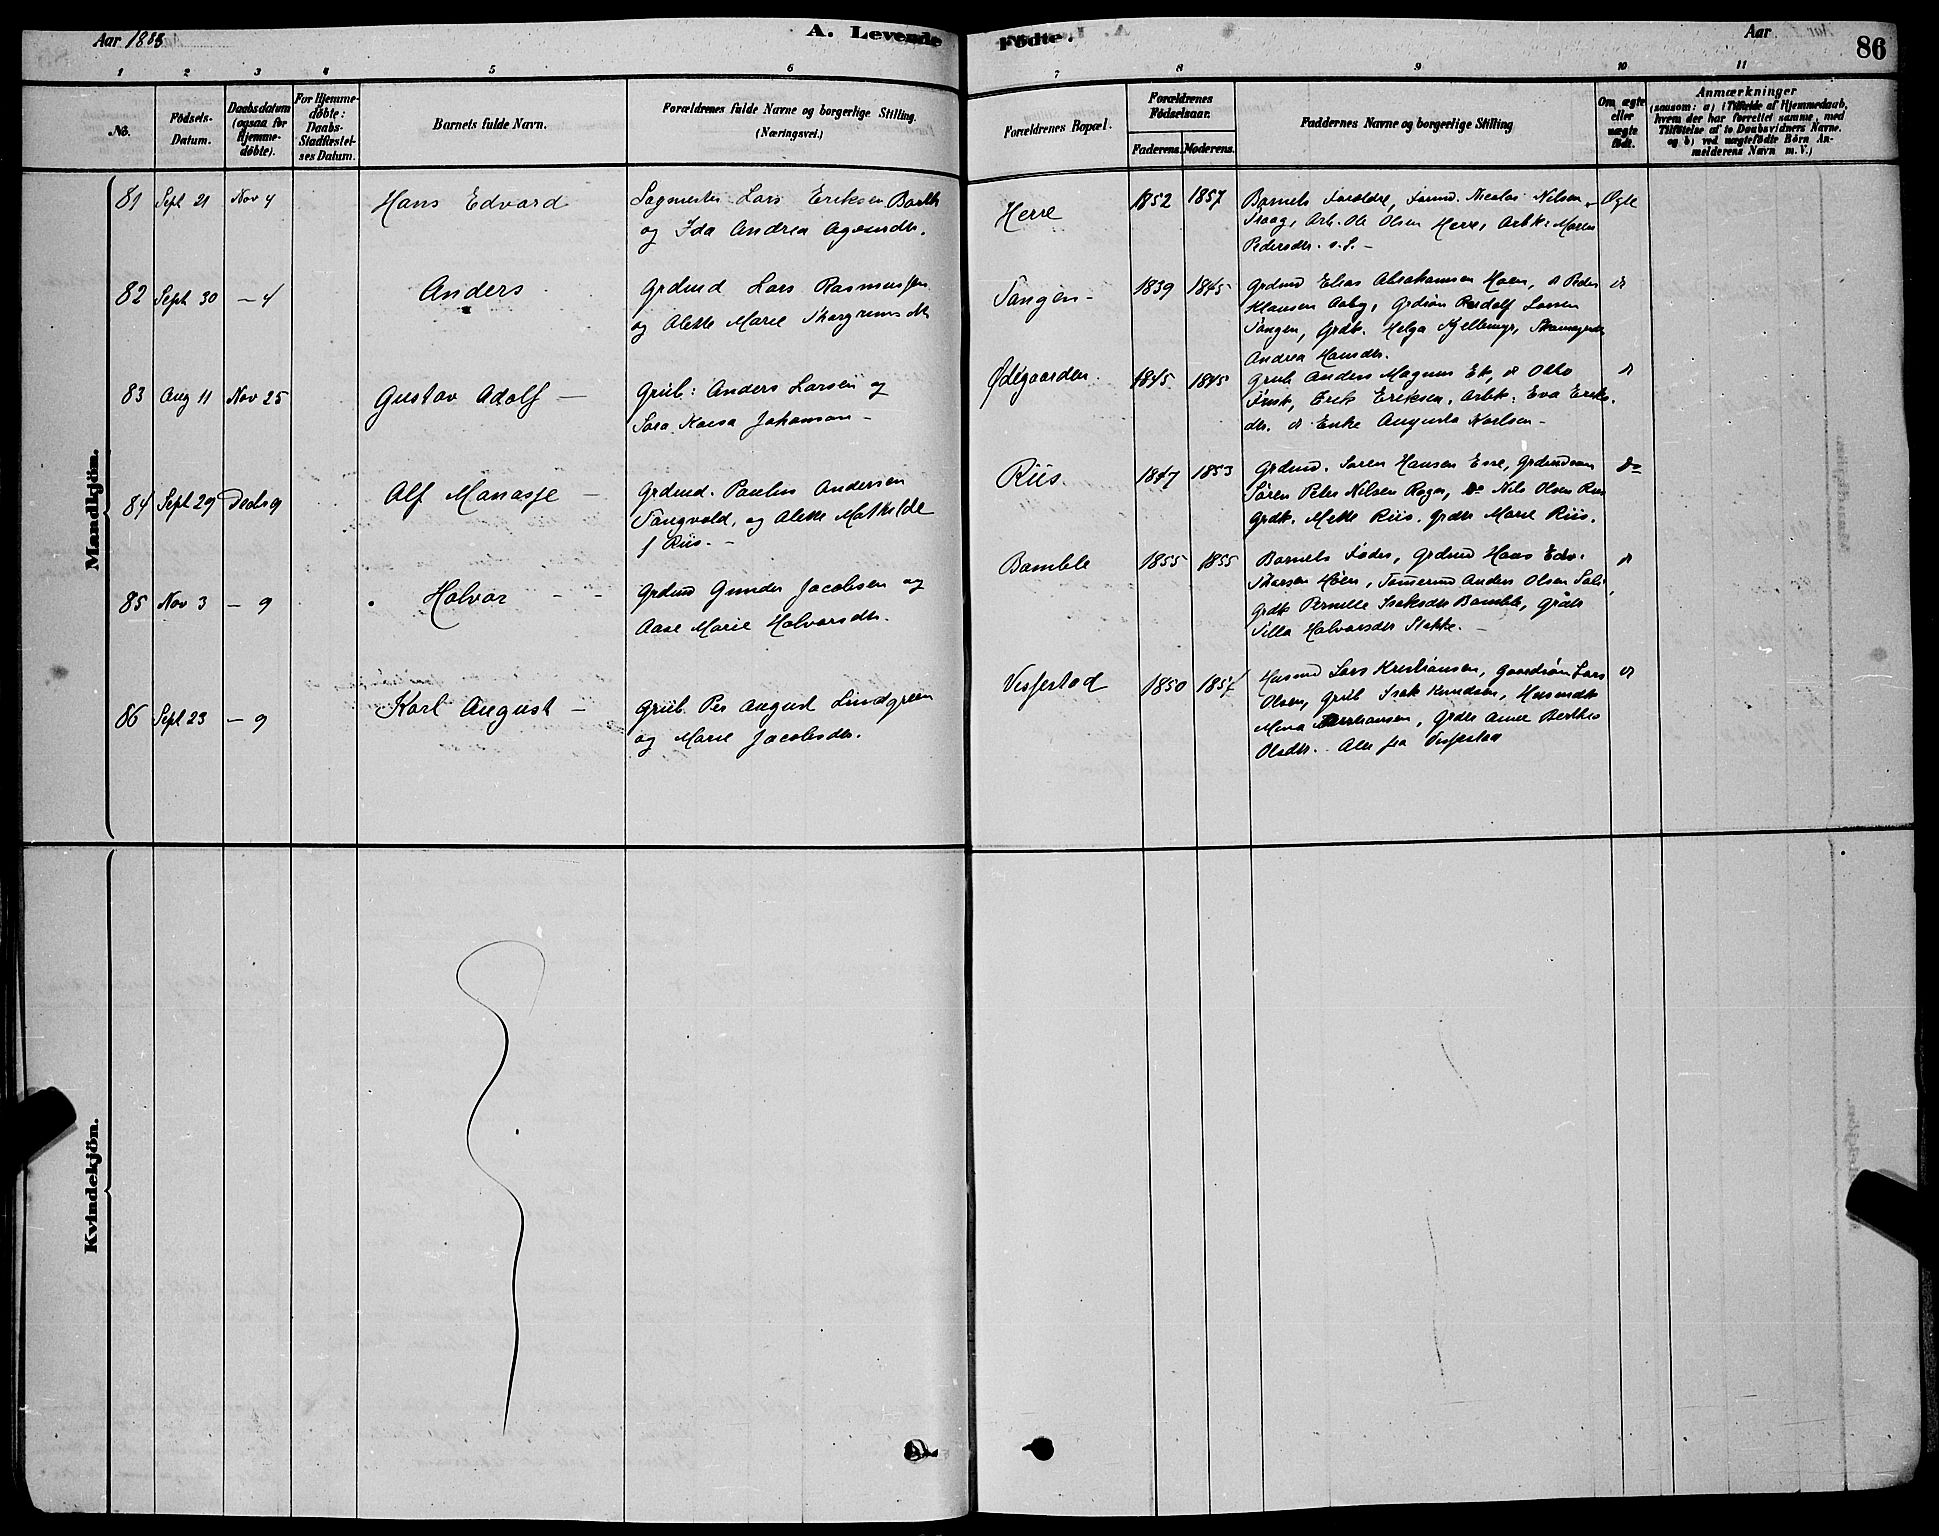 Aar 1888
A. Levende Fødte.
Aar
86
1 2 3 4 5 6 7 8 9 10 11
No.
Fødsels-Datum.
Daabsdatum (ogsaa for Hjemme-døbte).
For Hjemme-døbte: Daabs-Stadfæstel-ses Datum.
Barnets fulde Navn.
Forældrenes fulde Navne og borgerlige Stilling.
(Næringsvei.)
Forældrenes Bopæl.
Forældrenes Fødselsaar.
Faderens. Moderens.
Faddernes Navne og borgerlige Stilling
Om ægte eller uægte født.
Anmærkninger
(saasom: a) i Tilfælde af Hjemmedaab,
hvem der har forrettet samme, med
Tilføielse af to Daabsvidners Navne,
og b) ved uægtefødte Børn An-
melderens Navn m. V.)
Mandkjön.
81 Sept 21 Nov 4 Hans Edvard
Sagmester Lars Eriksen Barth
og Ida Andrea Agesndtr.
Herre 1852 1857
Barnets Forældre, Nicolai Nilsen
Traag, Arb. Ole Olsen Herre, Arbk. Maren
Pedersdtr. s. S. -
Ægte
82 Sept 30 - 4 Anders
Grdmd Lars Rasmussen
og Alette Marie
Tangen - 1839 1845
Grdmd Elias Abrahamsen Hoen, d Peder
Klausen Aaby, Grdsøn Rudolf Larsen
Tangen, Grdk. Helga Kjellemyr,
Andrea Hansdtr.
do
83 Aug 11 Nov 25 Gustav Adolf -
Grub: Anders Larsen og
Sara Kaesa Johanson -
Ødegaarden. 1845 1845
Grub Anders Magnus Ek, d Otto
Frisk, Erik Eriksen, Arbk: Eva Eriks-
dtr. d Enke Augusta Karlsen -
d
84 Sept 29 Decbr 9 Alf Manasse -
Grdmd. Paulus Andersen
Tangvald, og Alette Mathilde
f Riis. -
Riis. 1847 1853
Grdmd. Søren Hansen Esse, Grdmdsøn
Søren Peter Nilsen Roger, Do Nils Olsen Riis
Grdk. Mette Riis. Grdtr Marie Riis.
do
85 Nov 3 - 9 Halvor - -
Grdmd Gunder Jacobsen og
Aase Marie Halvorsdtr.
Bamble 1855 1855
Barnets Fader, Grdmd Hans Edv.
Thorsen Høen, Tømmermd Anders Olsen
Grdk Pernille Isaksdtr Bamble, Grdtr
Silla Halvorsdtr Stokke. -
d
86 Sept 23 - 9 Karl August -
Grub. Per August Lindgreen
og Marie Jacobsdtr.
Vissestad 1850 1857
Husmd Lars Kristiansen, Gaardsøn Lars
Olsen, Grub Isak Knudsen, Husmdk
Mina Kristiansen, Grdtr Anne Berthe
Olsdtr. Alle fra Vissestad
d
Kvindekjön.